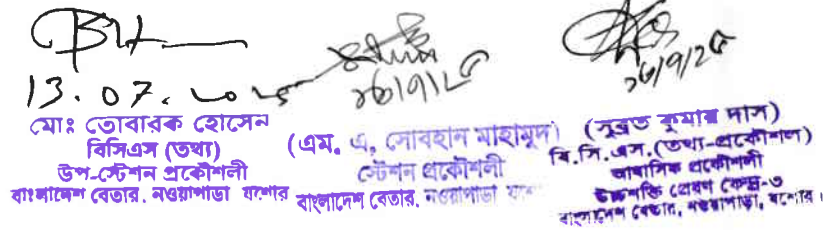 13.07.২০২৫
মোঃ তোবারক হোসেন
বিসিএস (তথ্য)
উপ-স্টেশন প্রকৌশলী
বাংলাদেশ বেতার, নওয়াপাড়া যশোর
১৩/৭/২৫
(এম. এ, সোবহান মাহামুদ)
স্টেশন প্রকৌশলী
বাংলাদেশ বেতার, নওয়াপাড়া
১৩/৭/২৫
(সুব্রত কুমার দাস)
বি.সি.এস.(তথ্য-প্রকৌশল)
আবাসিক প্রকৌশলী
উচ্চশক্তি প্রেরণ কেন্দ্র-৩
বাংলাদেশ বেতার, নওয়াপাড়া, যশোর।